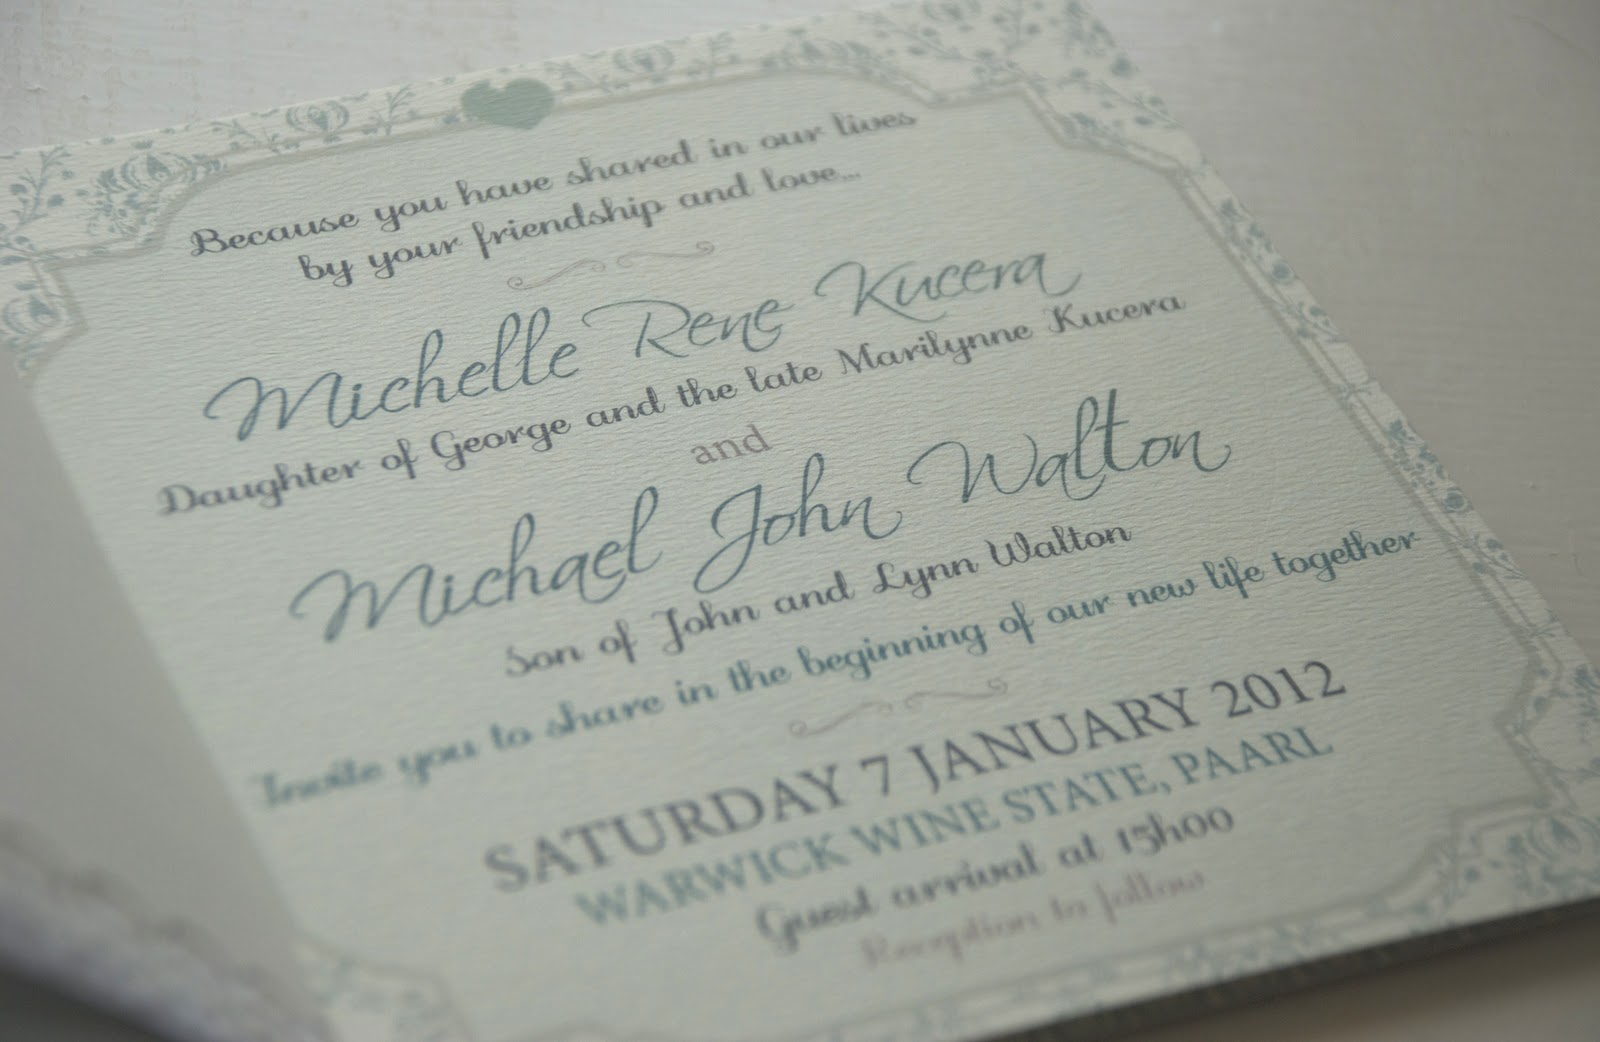 Because you have shared in our lives
by your friendship and love...
Michelle Rene Kucera
Daughter of George and the late Marilynne Kucera
and
Michael John Walton
Son of John and Lynn Walton
Invite you to share in the beginning of our new life together
SATURDAY 7 JANUARY 2012
WARWICK WINE STATE, PAARL
Guest arrival at 15h00
Reception to follow